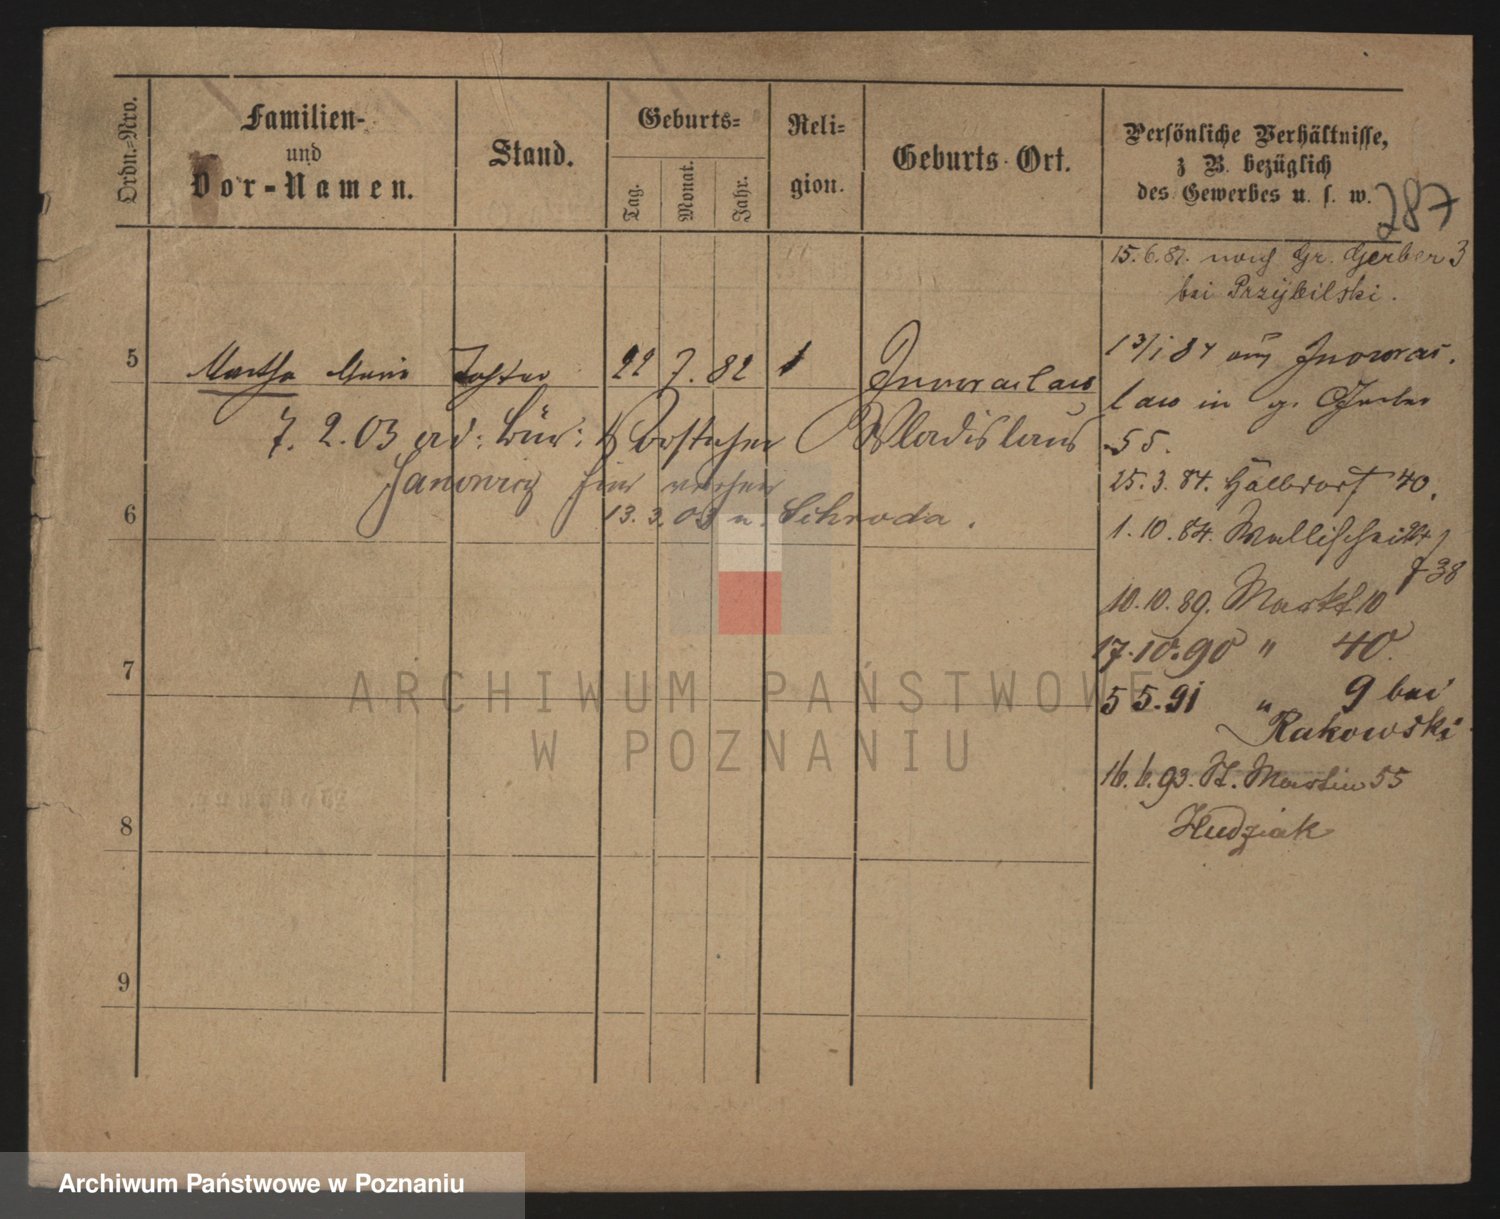 Ordn.-Nro.
Familien-
und
Vor-Namen.
Stand.
Geburts-
Tag.
Monat.
Jahr.
Reli-
gion.
Geburts-Ort.
Persönliche Verhältnisse,
z. B. bezüglich
des Gewerbes u. s. w.
287
15.6.81. nach Gr. Gerber 3
bei Przybilski.
5 Martha Marie Tochter 22 7. 82 Inowraclaw
13/1 84 aus Inowrac.
law in g. Gerber
55.
7. 2. 03 Wladislaus
Janowicz hier
13. 3. 03 n. Schroda.
25. 3. 84. Halbdorf 40.
6
1. 10. 84. Wallischei
38
10. 10. 89. Markt 10
17. 10. 90 " 40.
7
5 5. 91 " 9 bei
Rakowski
16. 6. 93. St. Martin 55
Hudziak
8
9
ARCHIWUM PAŃSTWOWE
W POZNANIU
Archiwum Państwowe w Poznaniu